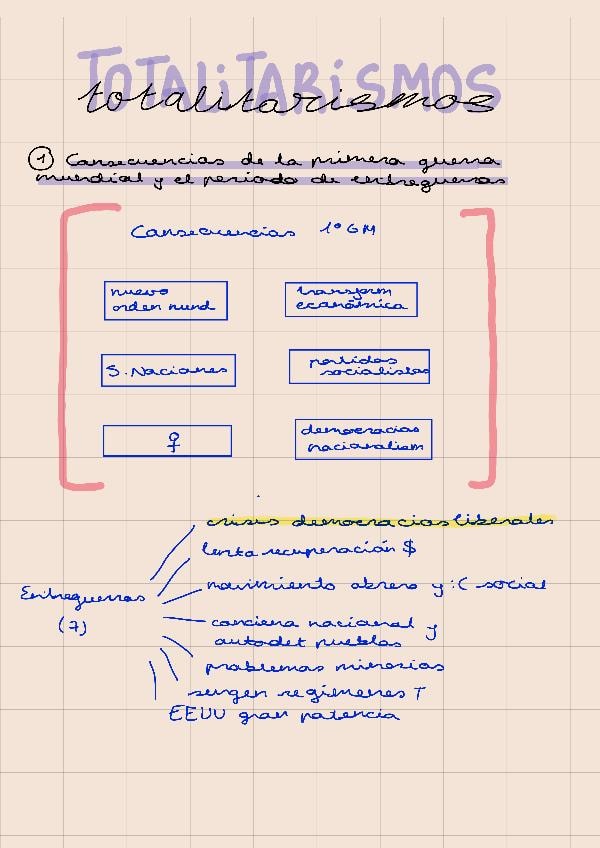 TOTALITARISMOS
totalitarismos
1 Consecuencias de la primera guerra
mundial y el periodo de entreguerras
Consecuencias 1º GM
nuevo
orden mund
transform
económica
S. Naciones
partidos
socialistas
♀
democracias
nacionalism
crisis democracias liberales
lenta recuperación $
movimiento obrero y :( social
Entreguerras
(7)
conciena nacional y
autodet pueblos
problemas minorias
surgen regímenes T
EEUU gran potencia